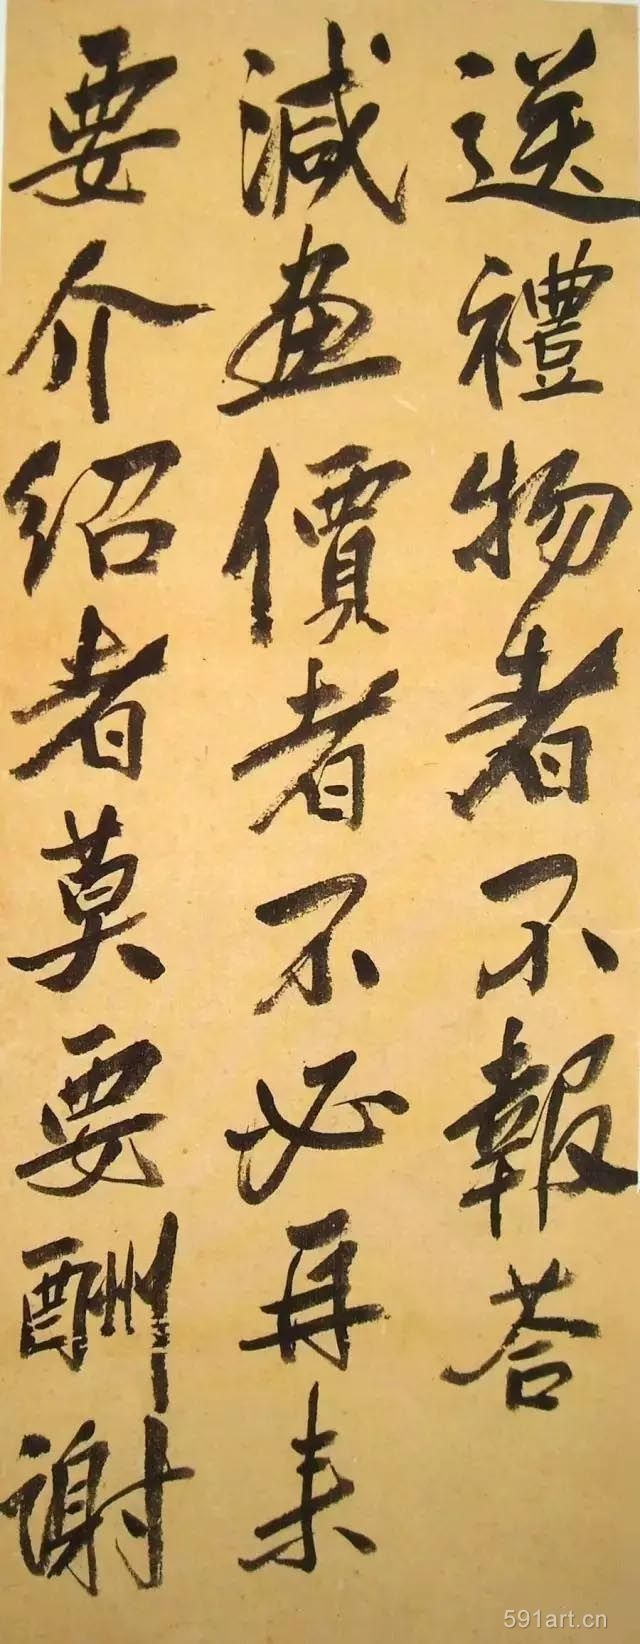 送禮物者不報荅
減畫價者不必再来
要介紹者莫要酬谢
591art.cn